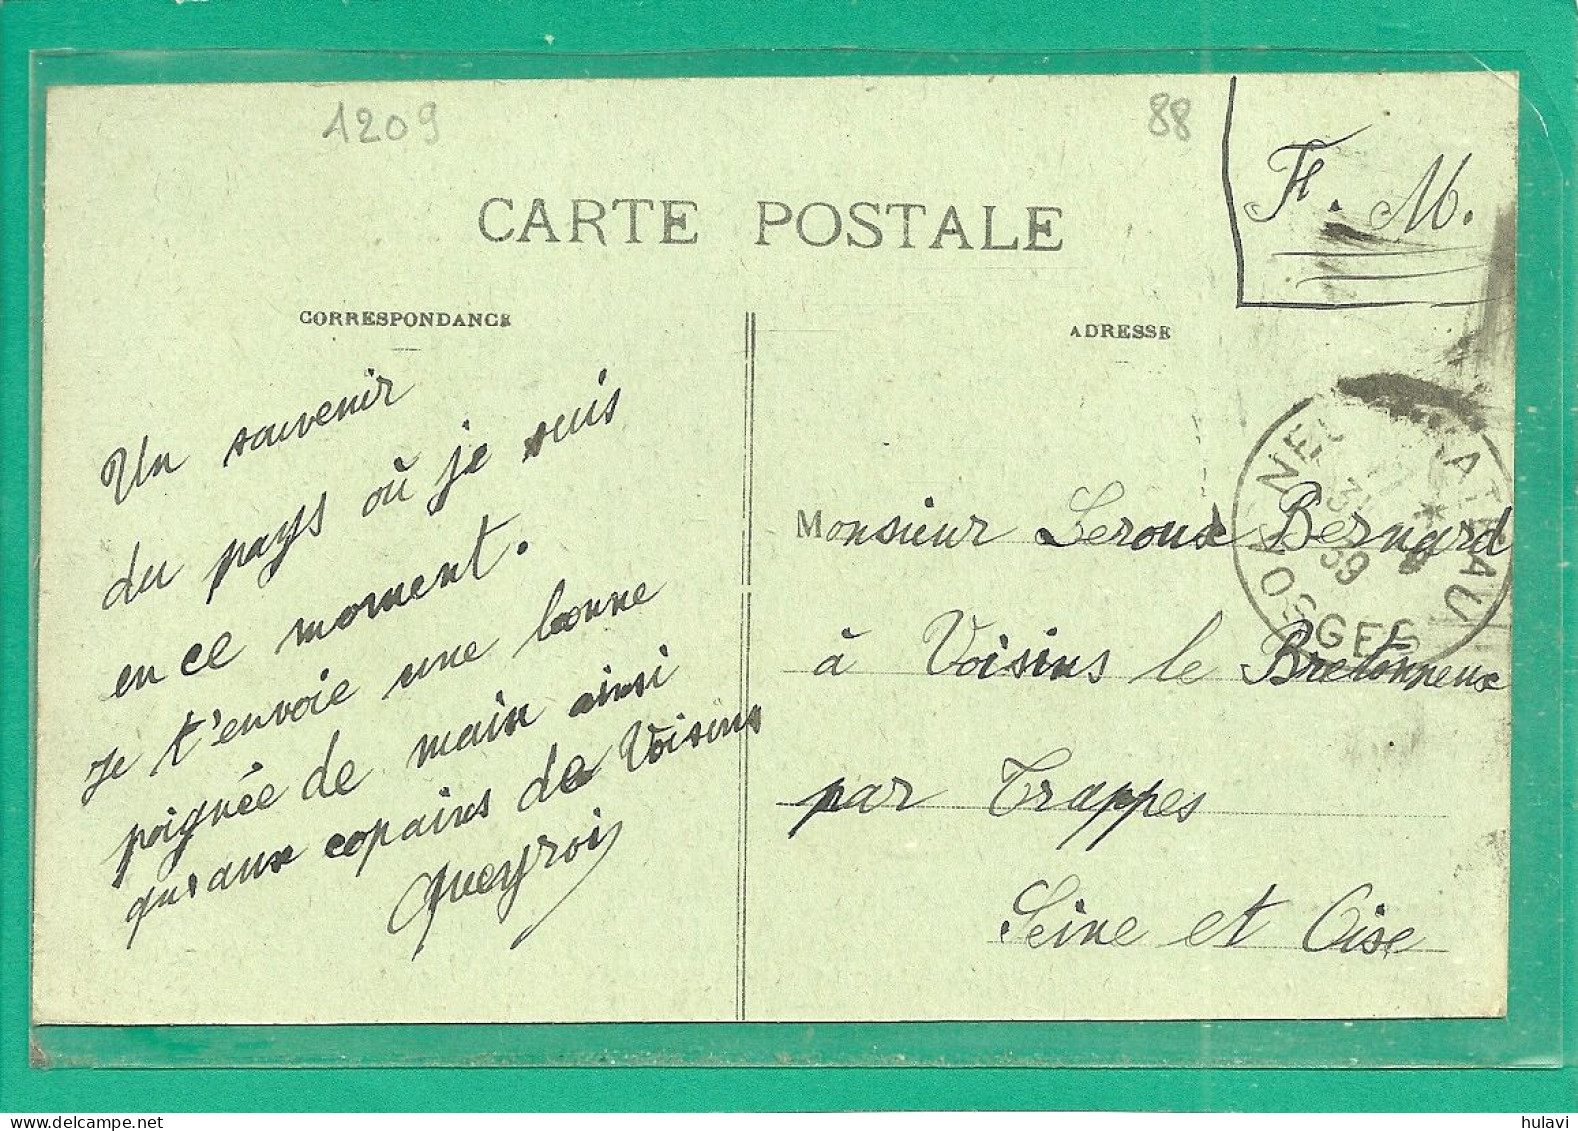 1209
88
F. M.
CARTE POSTALE
CORRESPONDANCE
ADRESSE
Un souvenir
du pays où je suis
en ce moment.
Je t'envoie une bonne
poignée de main ainsi
qu'aux copains de Voisins
Queyroix
Monsieur Leroux Bernard
à Voisins le Bretonneux
par Trappes
Seine et Oise
VOSGES
39
hulavi